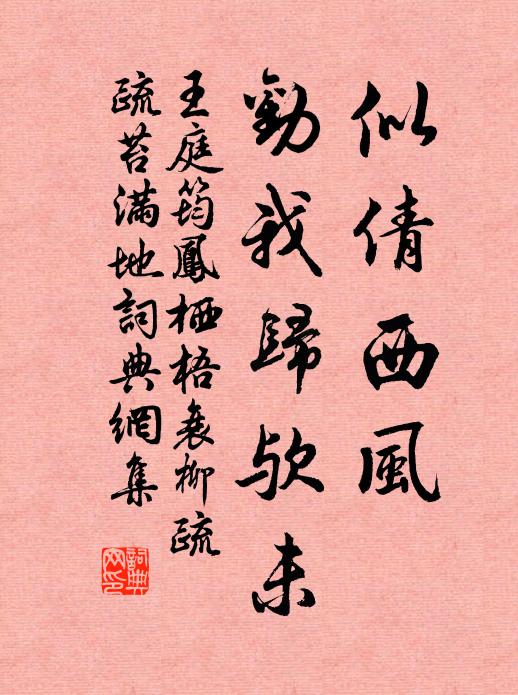 似倩西風
勸我歸欤未
王庭筠鳳栖梧衰柳疏
疏苔滿地詞典網集
詞典
网印